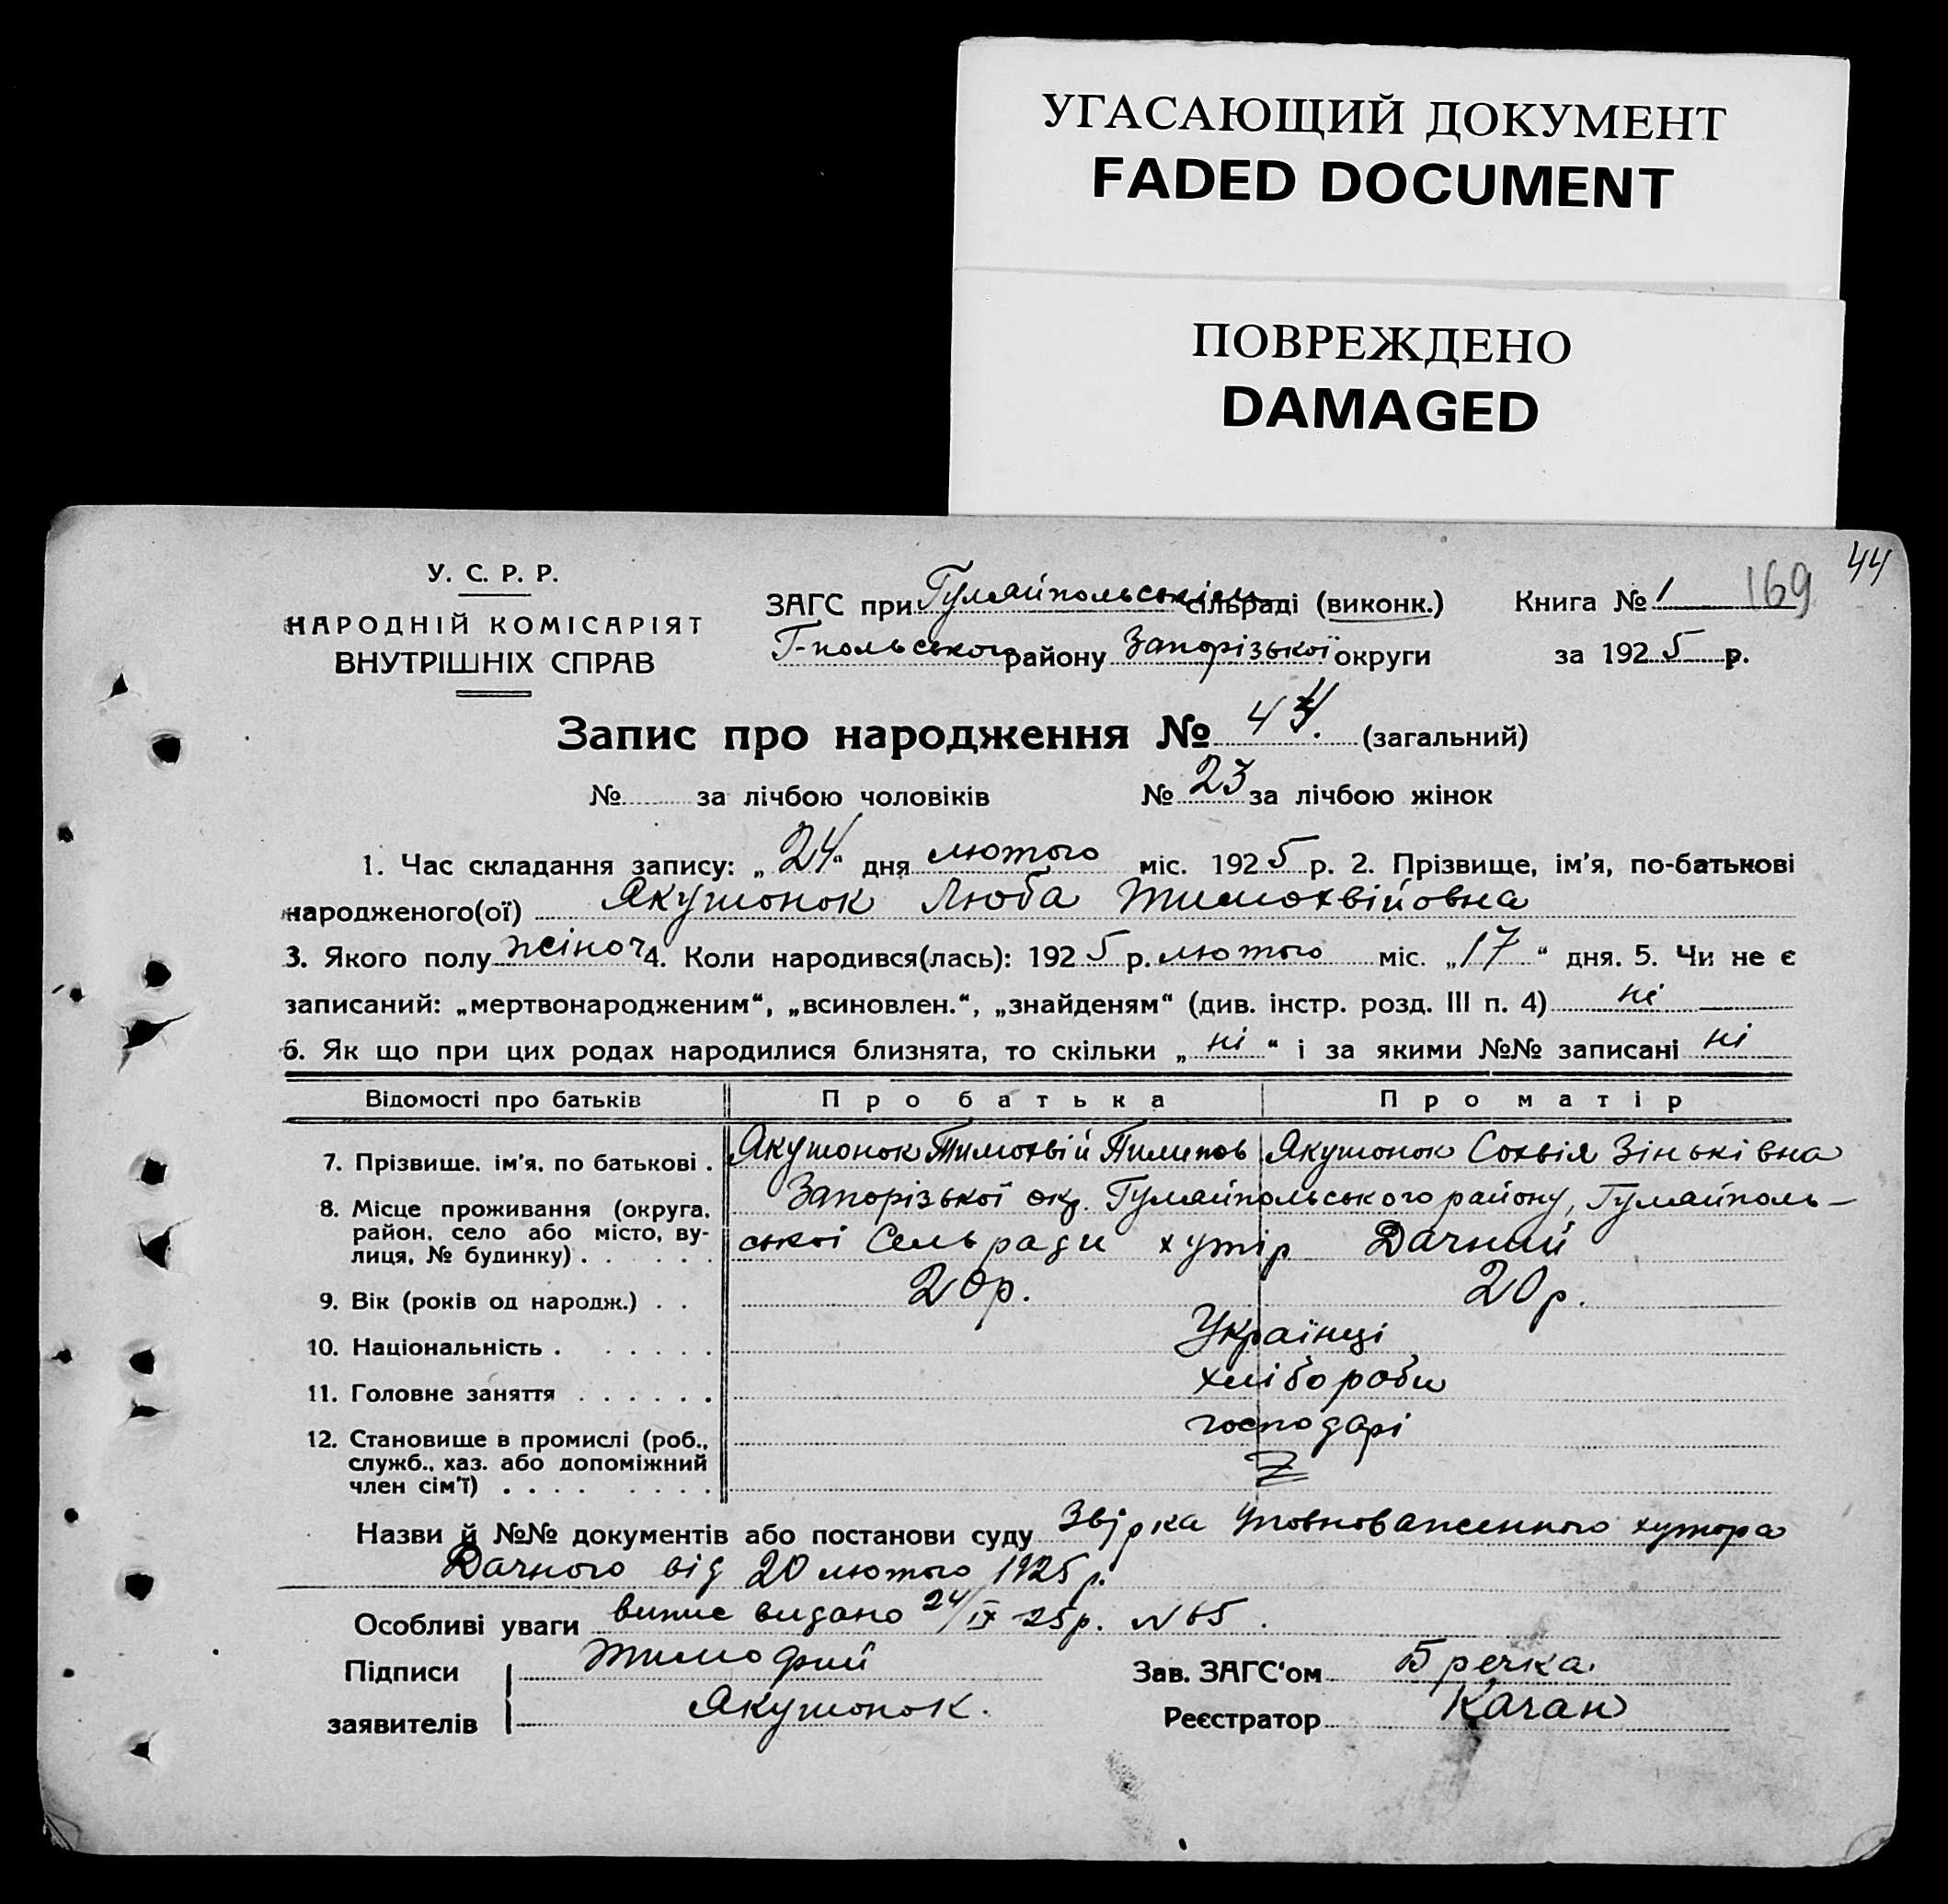 УГАСАЮЩИЙ ДОКУМЕНТ
FADED DOCUMENT
ПОВРЕЖДЕНО
DAMAGED
44
169
У. С. Р. Р.
НАРОДНІЙ КОМІСАРІЯТ
ВНУТРІШНІХ СПРАВ
ЗАГС при Гуляйпольськім сільраді (виконк.) Книга № 1
Г-польського району Запорізької округи за 1925 р.
Запис про народження № 44. (загальний)
№ за лічбою чоловіків № 23 за лічбою жінок
1. Час складання запису: „24“ дня лютого міс. 1925 р. 2. Прізвище, ім'я, по-батькові
народженого(ої) Якушонок Люба Тимохвійовна
3. Якого полу жіноч 4. Коли народився(лась): 1925 р. лютого міс. „17“ дня. 5. Чи не є
записаний: „мертвонародженим“, „всиновлен.“, „знайденям“ (див. інстр. розд. III п. 4) ні
6. Як що при цих родах народилися близнята, то скільки „ні“ і за якими №№ записані ні
Відомості про батьків Про батька Про матір
7. Прізвище, ім'я, по батькові . Якушонок Тимохвій Пилипов Якушонок Сохвія Зіньківна
8. Місце проживання (округа, Запорізької окр. Гуляйпольського району, Гуляйполь-
район, село або місто, ву-
лиця, № будинку) . . . . . ської Сельради хутір Дачний
9. Вік (років од народж.) . . 20р. 20р.
10. Національність . . . . . . Українці
11. Головне заняття . . . . . . хлібороби
12. Становище в промислі (роб., господарі
служб., хаз. або допоміжний
член сім'ї) . . . . . . . .
Назви й №№ документів або постанови суду Звірка Уповноваженного хутора
Дачного від 20 лютого 1925 р.
Особливі уваги випис видано 24/IX 25р. №65.
Підписи Тимофий Зав. ЗАГС'ом Бречка.
заявителів Якушонок. Реєстратор Качан